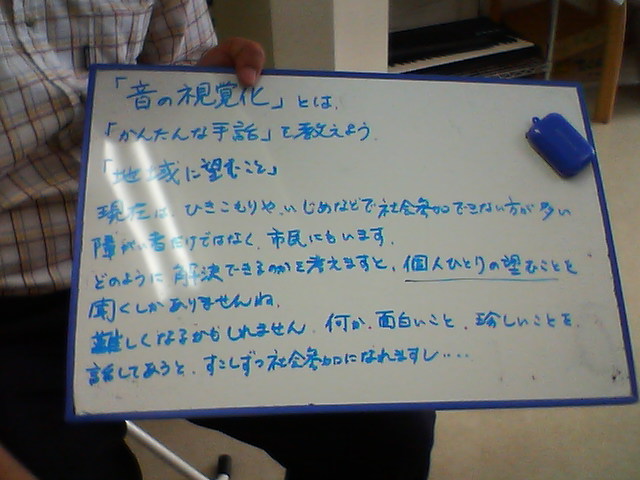 「音の視覚化」とは、
「かんたんな手話」を教えよう
「地域に望むこと」
現在は、ひきこもりや、いじめなどで社会参加できない方が多い
障がい者だけではなく、市民にもいます。
どのように解決できるのかを考えますと、個人ひとりの望むことを
聞くしかありませんね。
難しくなるかもしれません。何か、面白いこと、珍しいことを
話してあうと、すこしずつ社会参加になれますし....